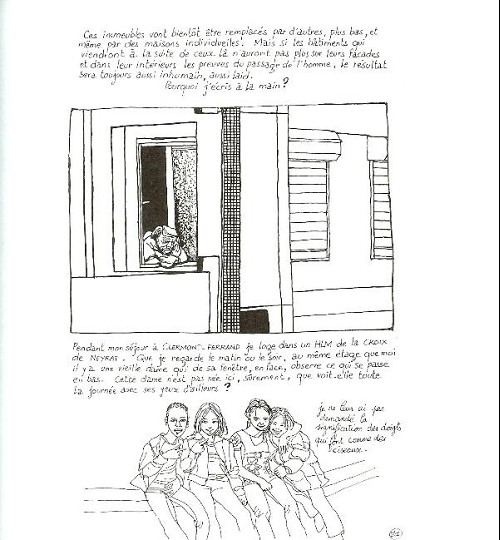 Ces immeubles vont bientôt être remplacés par d'autres, plus bas, et
même par des maisons individuelles. Mais si les bâtiments qui
viendront à la suite de ceux là n'auront pas plus sur leurs façades
et dans leur intérieurs les preuves du passage de l'homme, le résultat
sera toujours aussi inhumain, aussi laid.
Pourquoi j'écris à la main?
Pendant mon séjour à CLERMONT-FERRAND je loge dans un HLM de la CROIX
de NEYRAT. Que je regarde le matin ou le soir, au même étage que moi
il y a une vieille dame qui de sa fenêtre, en face, observe ce qui se passe
en bas. Cette dame n'est pas née ici, sûrement, que voit-elle toute
la journée avec ses yeux d'ailleurs ?
Je ne leur ai pas
demandé la
signification des doigts
qui font comme des
ciseaux.